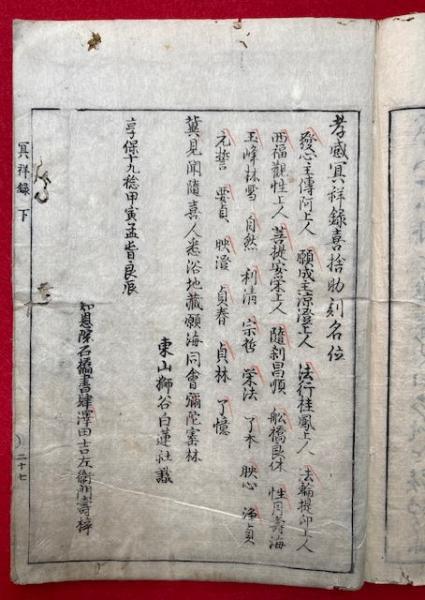 孝感冥祥録喜捨助刻名位
發心主傳阿上人 願成主涼澄上人 法行桂鳳上人 法輪提印上人
西福觀性上人 菩提密宋上人 隨剃昌順 舩橋良休 性月壽海
玉峰林雪 自然 利清 宗哲 榮法 了本 映心 淨貞
元誓 要貞 映澄 貞春 貞林 了憶
冀見聞隨喜人悉浴地藏願海同會彌陀密林
東山獅谷白蓮社識
享保十九稔甲寅孟 良辰
知恩院石橋書肆澤田吉左衛門壽梓
冥祥録 下
二十七